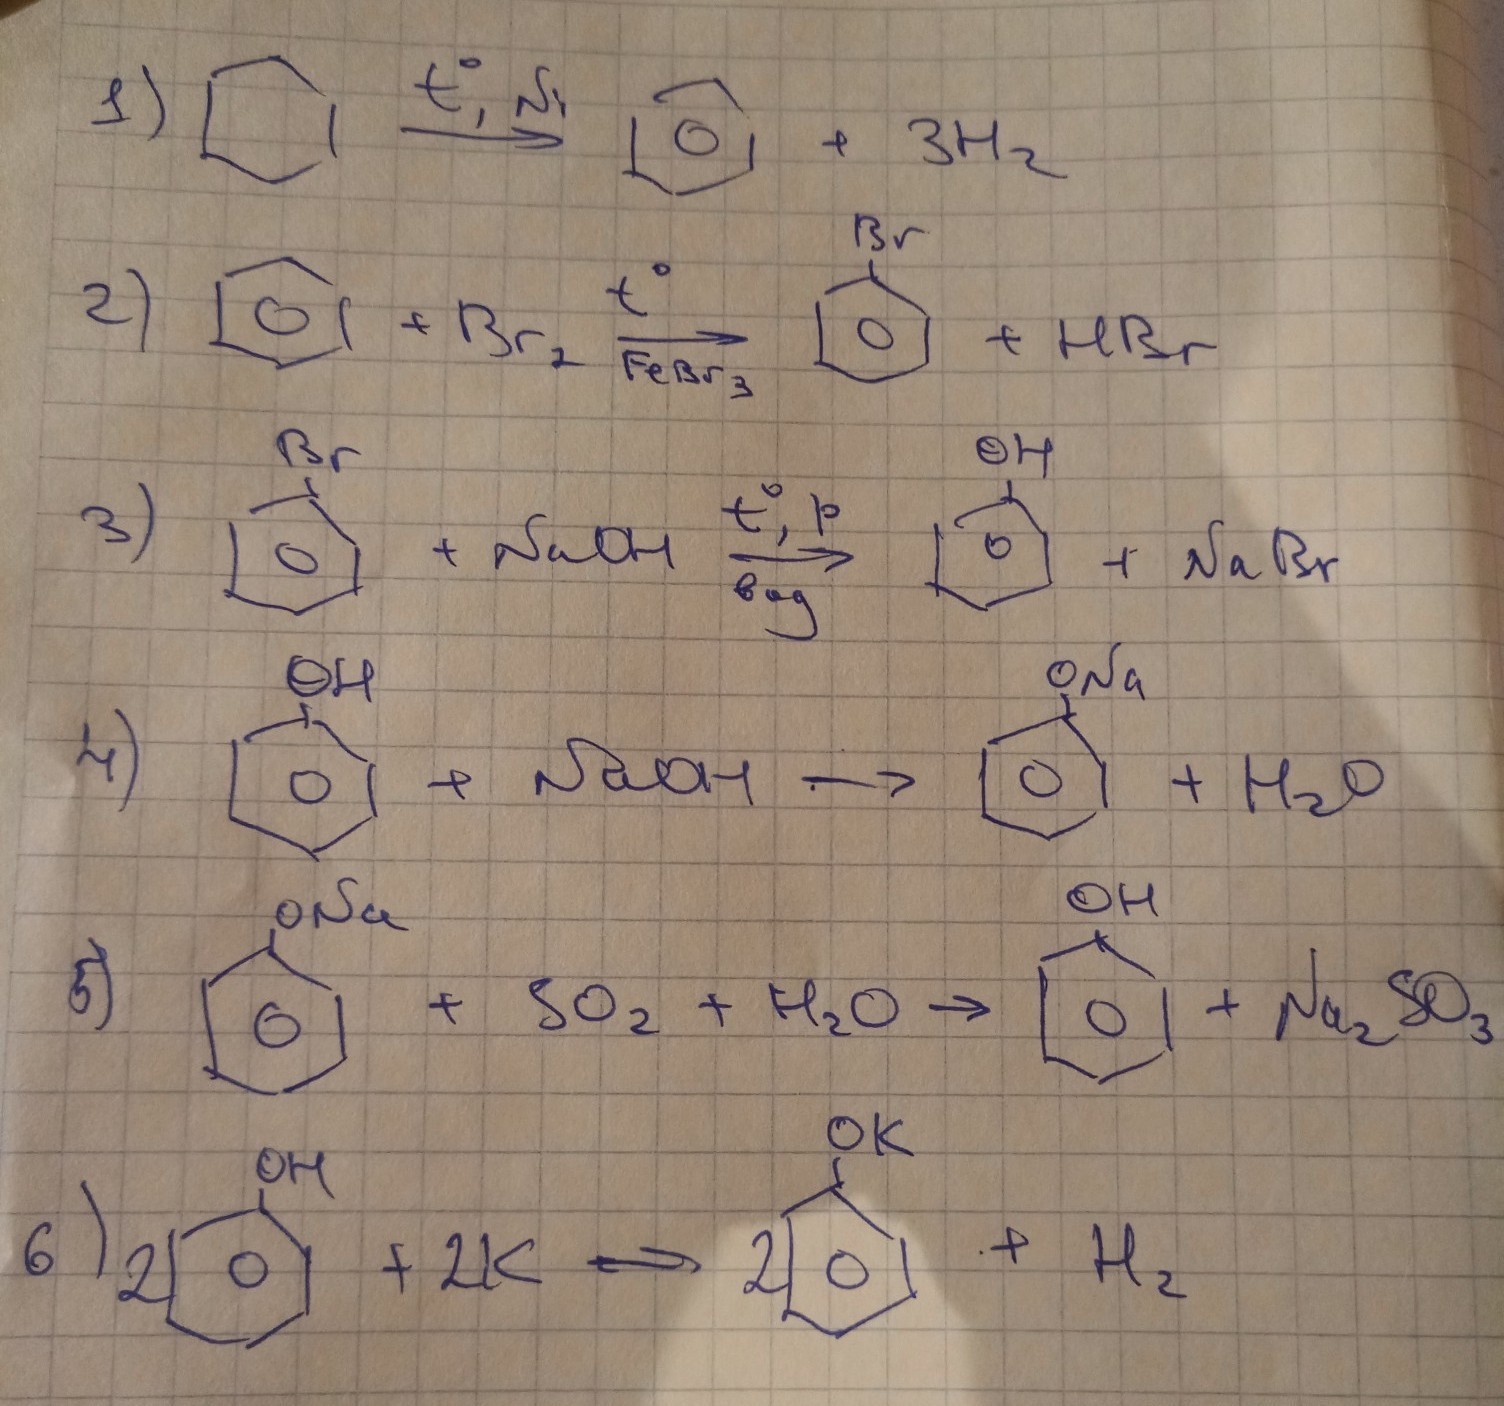 1) t°, Ni + 3H₂
2) + Br₂ t° FeBr₃ Br + HBr
3) Br + NaOH t°, p вод OH + NaBr
4) OH + NaOH → ONa + H₂O
5) ONa + SO₂ + H₂O → OH + Na₂SO₃
6) 2 OH + 2K → 2 OK + H₂